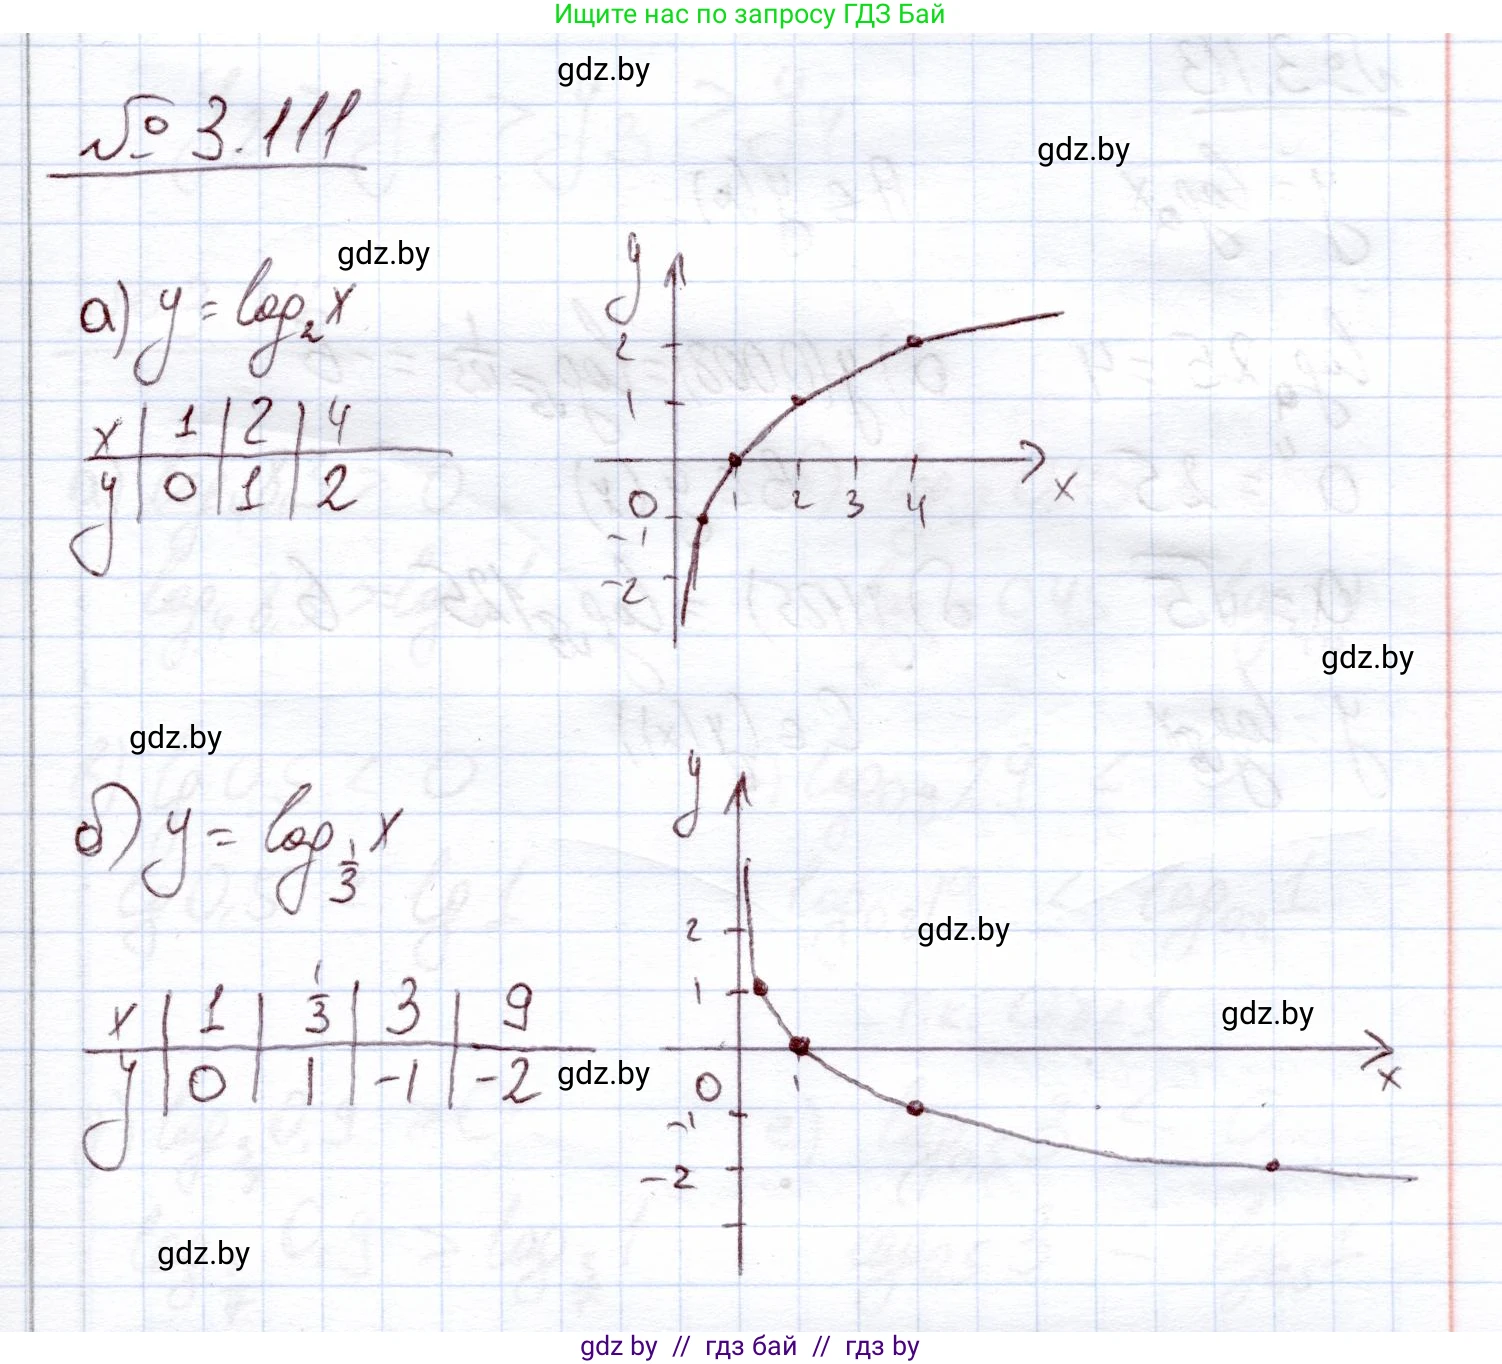 Ищите нас по запросу ГДЗ Бай
gdz.by
№ 3.111
gdz.by
gdz.by
а) y = log₂ x
x | 1 | 2 | 4
y | 0 | 1 | 2
y
2
1
0 1 2 3 4 x
-1
-2
gdz.by
gdz.by
б) y = log_{1/3} x
x | 1 | 1/3 | 3 | 9
y | 0 | 1 | -1 | -2
y
2
1
0 1 x
-1
-2
gdz.by
gdz.by
gdz.by
gdz.by
gdz by // гдз бай // гдз by